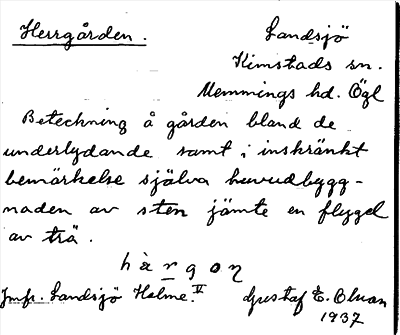 Herrgården. Landsjö
Kimstads sn.
Memmings hd. Ögl
Beteckning å gården bland de
underlydande samt i inskränkt
bemärkelse själva huvudbygg-
naden av sten jämte en flygel
av trä.
hàrgoŋ
Jmfr. Landsjö Holme. V Gustaf E. Olson
1937